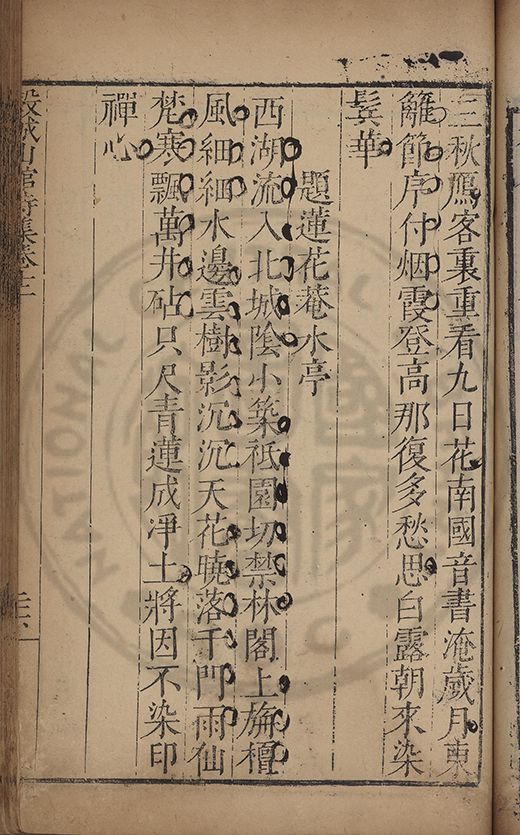 三秋鴈客裏重看九日花南國音書淹歲月東
籬節序付烟霞登高那復多愁思白露朝來染
鬂華
題蓮花菴水亭
西湖流入北城隂小築祇園切禁林閣上旃檀
風細細水邊雲樹影沉沉天花曉落千門雨仙
梵寒飄萬井砧只尺青蓮成凈土將因不染印
禪心
穀城山館詩集卷十二
NATION
國家